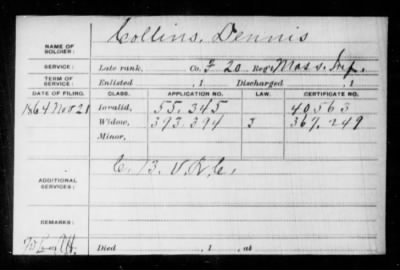 Collins, Dennis
NAME OF SOLDIER:
SERVICE: Late rank, Co. F 20 Reg't Mass. Inf.
TERM OF SERVICE: Enlisted , 1 Discharged , 1
DATE OF FILING. CLASS. APPLICATION NO. LAW. CERTIFICATE NO.
1864 Nov 21 Invalid, 55.345 40,563
Widow, 393.394 J 367.249
Minor,
ADDITIONAL SERVICES: C. 13. V.R.C.
REMARKS:
Died , 1 , at